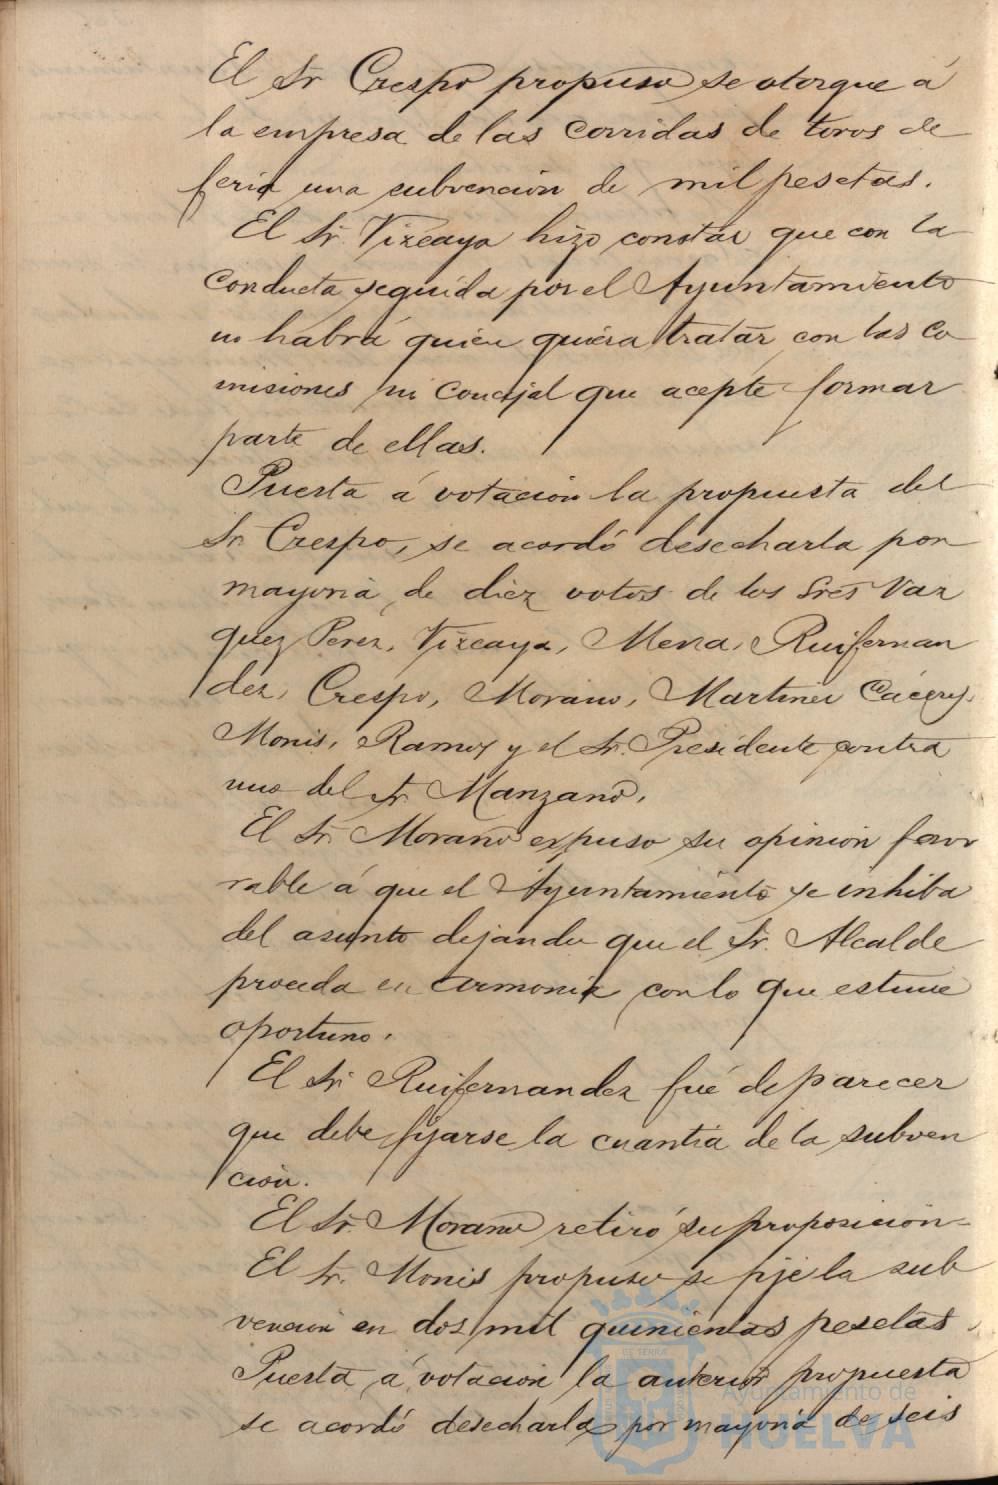 El Sr Crespo propuso se otorgue á
la empresa de las corridas de toros de
feria una subvención de mil pesetas.
El Sr. Vizcaya hizo constar que con la
conducta seguida por el Ayuntamiento
no habrá quien quiera tratar con las co
misiones ni concejal que acepte formar
parte de ellas.
Puesta á votación la propuesta del
Sr. Crespo, se acordó desecharla por
mayoria de diez votos de los Sres Vaz
quez Perez, Vizcaya, Mena, Ruifernan
dez, Crespo, Morano, Martinez Cáceres,
Monis, Ramos y el Sr. Presidente contra
uno del Sr Manzano.
El Sr. Morano expuso su opinion favo
rable á que el Ayuntamiento se inhiba
del asunto dejando que el Sr. Alcalde
proceda en armonia con lo que estime
oportuno.
El Sr Ruifernandez fué de parecer
que debe fijarse la cuantia de la subven
ción.
El Sr. Morano retiró su proposición-
El Sr. Monis propuso se fije la sub
vencion en dos mil quinientas pesetas.
Puesta á votacion la anterior propuesta
se acordó desecharla por mayoria de seis
Ayuntamiento de
HUELVA